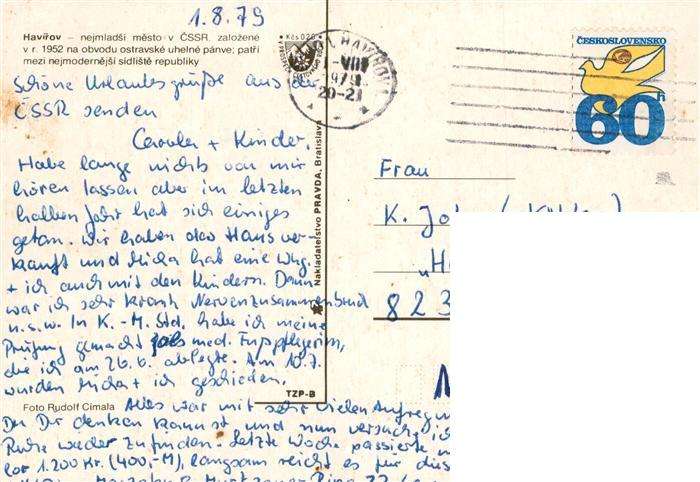 1.8.79
Havířov – nejmladší město v ČSSR. založené
v r. 1952 na obvodu ostravské uhelné pánve; patří
mezi nejmodernější sídliště republiky
Kčs 0,20
HAVÍŘOV 1
-1.VIII
1979
20-21
ČESKOSLOVENSKO
60 h
Schöne Urlaubsgrüße aus der
ČSSR senden
Carola + Kinder.
Habe lange nichts von mir
hören lassen aber im letzten
halben Jahr hat sich einiges
getan. Wir haben das Haus ver-
kauft und Micha hat eine Whg.
+ ich auch mit den Kindern. Dann
war ich sehr krank Nervenzusammenbruch
u.s.w. In K.-M.-Std. habe ich meine
Prüfung gemacht als med. Fußpflegerin,
die ich am 26.6. ablegte. Am 10.7.
wurden Micha + ich geschieden.
Alles war mit sehr vielen Aufregun
Du Dir denken kannst und nun versuche ich
Ruhe wieder zu finden. Letzte Woche passierte
lor 1.200 Kr. (400,-M), langsam reicht es für
Foto Rudolf Cimala
TZP-B
Nakladatelstvo PRAVDA, Bratislava
Frau
K.
823